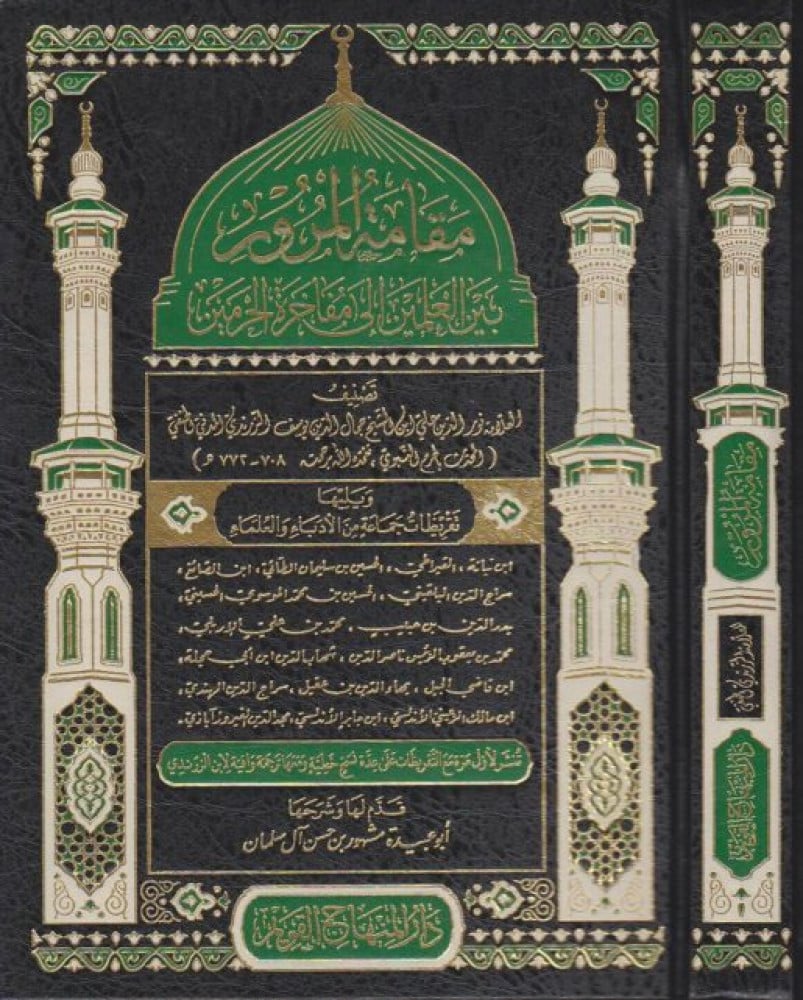 مَقَامَةُ المُرُورِ
بَيْنَ العَلَمَيْنِ إِلَى مُفَاخَرَةِ الحَرَمَيْنِ
تَصْنِيفُ
العلامة نور الدين علي ابن الشيخ جمال الدين يوسف الزرندي المدني الحنفي
( المحدث بالحرم النبوي ، تغمده الله برحمته ٧٠٨-٧٧٢ هـ )
وَيَليهَا
تَقْرِيظَاتُ جَمَاعَةٍ مِنَ الأُدَبَاءِ وَالعُلَمَاءِ
ابن نباتة ، القيراطي ، الحسين بن سليمان الطائي ، ابن الصائغ ،
سراج الدين البلقيني ، الحسين بن محمد الموسوي الحسيني ،
بدر الدين بن حبيب ، محمد بن علي الإربلي ،
محمد بن يعقوب الرئيس ناصر الدين ، شهاب الدين ابن أبي حجلة ،
ابن قاضي الجبل ، بهاء الدين بن عقيل ، سراج الدين الهندي ،
ابن مالك الرعيني الأندلسي ، ابن جابر الأندلسي ، مجد الدين الفيروزآبادي .
تُنْشَر لأوّل مَرة مَعَ التَّقْرِيظَات عَلى عِدَّة نُسَخٍ خَطِّيَّةٍ وَمَعَهَا تَرْجَمَة وَافِيَة لِابنِ الزَّرَنْدِي
قَدَّم لَهَا وَشَرَحَهَا
أبو عبيدة مشهور بن حسن آل سلمان
دَارُ المِنْهَاجِ القَوِيمِ
مَقَامَةُ المُرُورِ
دَارُ المِنْهَاجِ القَوِيمِ